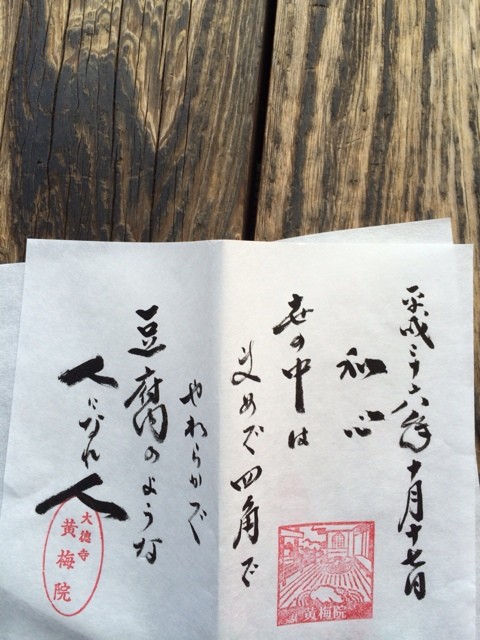 平成二十六年十月十七日
和心
世の中は
まめで四角で
やわらかで
豆腐のような
人になれ人
黄梅院
大徳寺
黄梅院